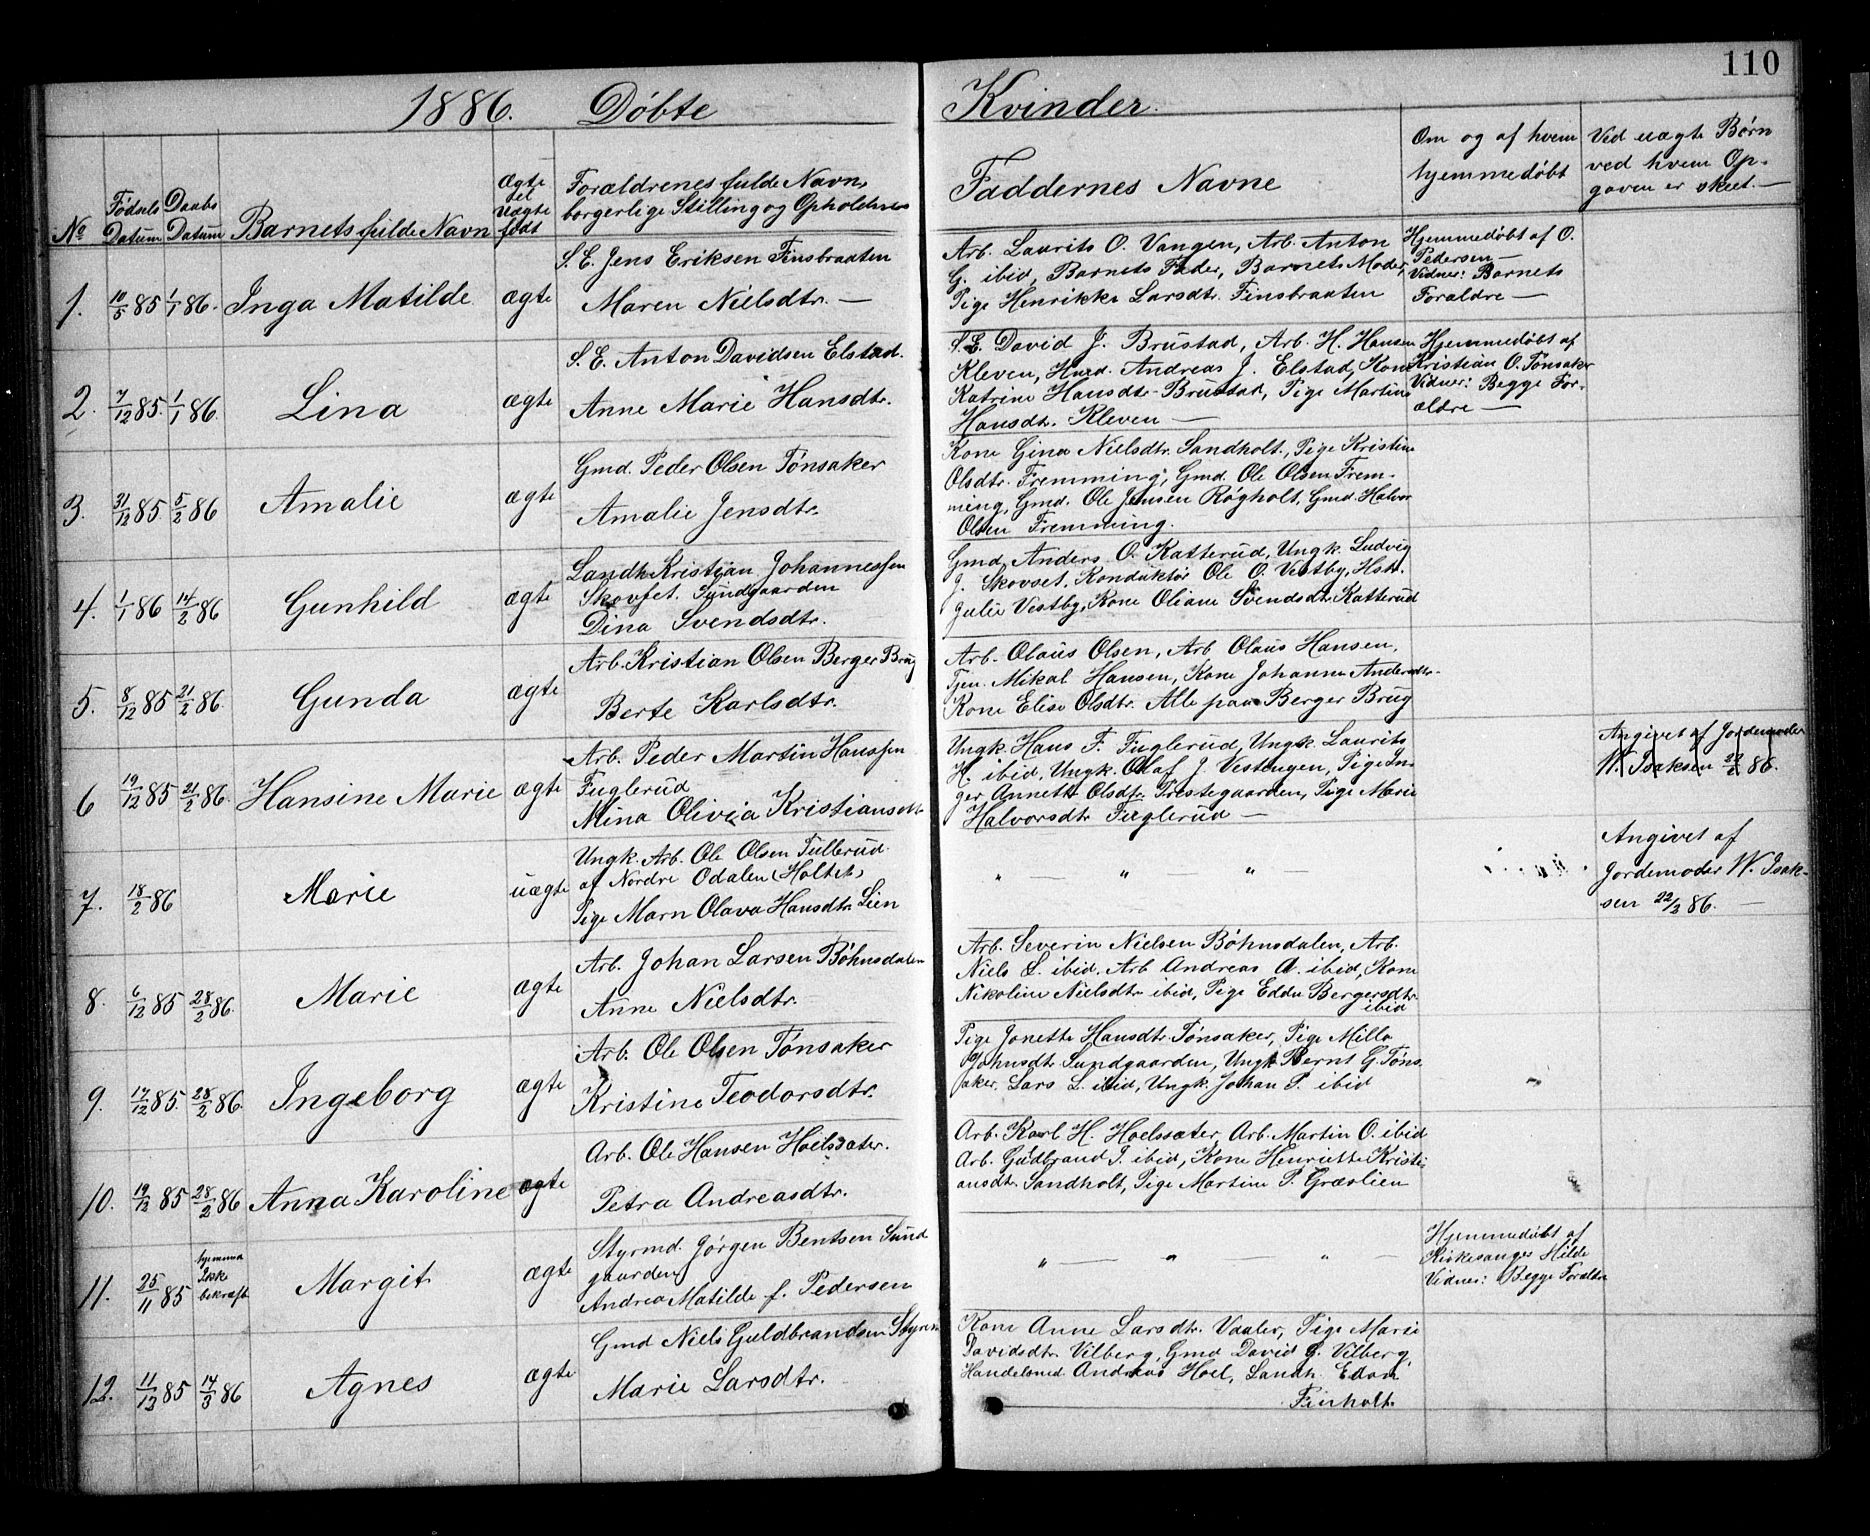 110
1886. Döbte Kvinder.
No
Fødsels Datum
Daabs Datum
Barnets fulde Navn
Ægte el. Uægte født
Forældrenes fulde Navn,
borgerlige Stilling og Opholdssted
Faddernes Navne
Om og af hvem
hjemmedøbt
Ved uægte Børn
ved hvem Op-
gaven er skeet. —
1. 10/5 85 1/1 86. Inga Matilde ægte
S. E. Jens Eriksen Finsbraaten
Maren Nielsdtr. —
Arb. Laurits O. Vangen, Arb. Anton
G. ibid, Barnets Fader, Barnets Moder,
Pige Henrikke Larsdtr. Finsbraaten
Hjemmedøbt af O.
Pedersen —
Vidner: Barnets
Forældre —
2. 7/12 85. 1/1 86. Lina ægte
S. E. Anton Davidsen Elstad.
Anne Marie Hansdtr.
S. E. David J. Brustad, Arb. H. Hansen
Kleven, Hmd. Andreas J. Elstad, Kone
Katrine Hansdtr. Brustad, Pige Martine
Hansdtr. Kleven —
Hjemmedøbt af
Kristian O. Tönsaker
Vidner: Begge For-
ældre —
3. 31/12 85. 5/2 86 Amalie ægte
Gmd. Peder Olsen Tönsaker
Amalie Jensdtr.
Kone Gina Nielsdtr. Sandholt, Pige Kristine
Olsdtr. Fremming, Gmd. Ole Olsen Frem-
ming, Gmd. Ole Jensen Rögholt, Gmd. Halvor
Olsen Fremming.
4. 1/1 86 14/2 86 Gunhild ægte
Landh. Kristian Johannessen
Skovset. Sundgaarden
Dina Svendsdtr.
Gmd. Anders O. Katterud, Ungk. Ludvig
J. Skovset, Konduktör Ole O. Vestby, Hst.
Julie Vestby, Kone Oliane Svendsdtr. Katterud
5. 8/12 85 21/2 86. Gunda ægte
Arb. Kristian Olsen Berger Brug
Berte Karlsdtr.
Arb. Olaus Olsen, Arb. Olaus Hansen,
Tjen. Mikal Hansen, Kone Johanne Andersdtr.
Kone Elise Olsdtr. Alle paa Berger Brug
6 19/12 85 21/2 86. Hansine Marie ægte
Arb. Peder Martin Hanssen
Fuglerud
Mina Olivia Kristiansdtr
Ungk. Hans F. Fuglerud, Ungk. Laurits
H. ibid, Ungk. Olaf J. Vestengen, Pige In-
ger Annette Olsdtr. Prestegaarden, Pige Marie
Halvorsdtr. Fuglerud —
Angivet af Jordemoder
W. Isaksen 22/2 86.
7. 18/2 86 Marie uægte
Ungk. Arb. Ole Olsen Tullerud
af Nordre Odalen (Holtet)
Pige Marn Olava Hansdtr. Lien
" — " — " —
Angivet af
Jordemoder W. Isak-
sen 22/3 86. —
8. 6/12 85 28/2 86. Marie ægte
Arb. Johan Larsen Böhnsdalen
Anne Nielsdtr.
Arb. Severin Nielsen Böhnsdalen, Arb.
Niels L. ibid. Arb Andreas A. ibid, Kone
Nikoline Nielsdtr ibid, Pige Edda Bergersdtr.
ibid
9. 17/12 85. 28/2 86. Ingeborg ægte
Arb. Ole Olsen Tönsaker
Kristine Teodorsdtr.
Pige Jonette Hansdtr. Tönsaker, Pige Milla
Johnsdtr. Sundgaarden, Ungk. Bernt G. Töns-
aker, Lars L. ibid, Ungk. Johan P. ibid
10. 19/12 85 28/2 86 Anna Karoline ægte
Arb. Ole Hansen Hoelssæter.
Petra Andreasdtr.
Arb. Karl H. Hoelssæter, Arb. Martin O. ibid
Arb. Gudbrand J. ibid, Kone Henriette Kristi-
ansdtr. Sandholt, Pige Martine P. Græslien
11. 25/11 85 hjemmed. Ikke bekræft. Margit ægte
Styrmd. Jörgen Bentsen Sund
gaarden
Andrea Matilde f. Pedersen
" — " — " —
Hjemmedøbt af
Kirkesanger Hilde
Vidner: Begge Forældre
12. 11/12 85 14/3 86 Agnes ægte
Gmd Niels Guldbrandsen Styren
Marie Larsdtr.
Kone Anne Larsdtr. Vaaler, Pige Marie
Davidsdtr. Vilberg, Gmd David G. Vilberg,
Handelsmd Andreas Hoel, Landh. Edvard
Finholt.